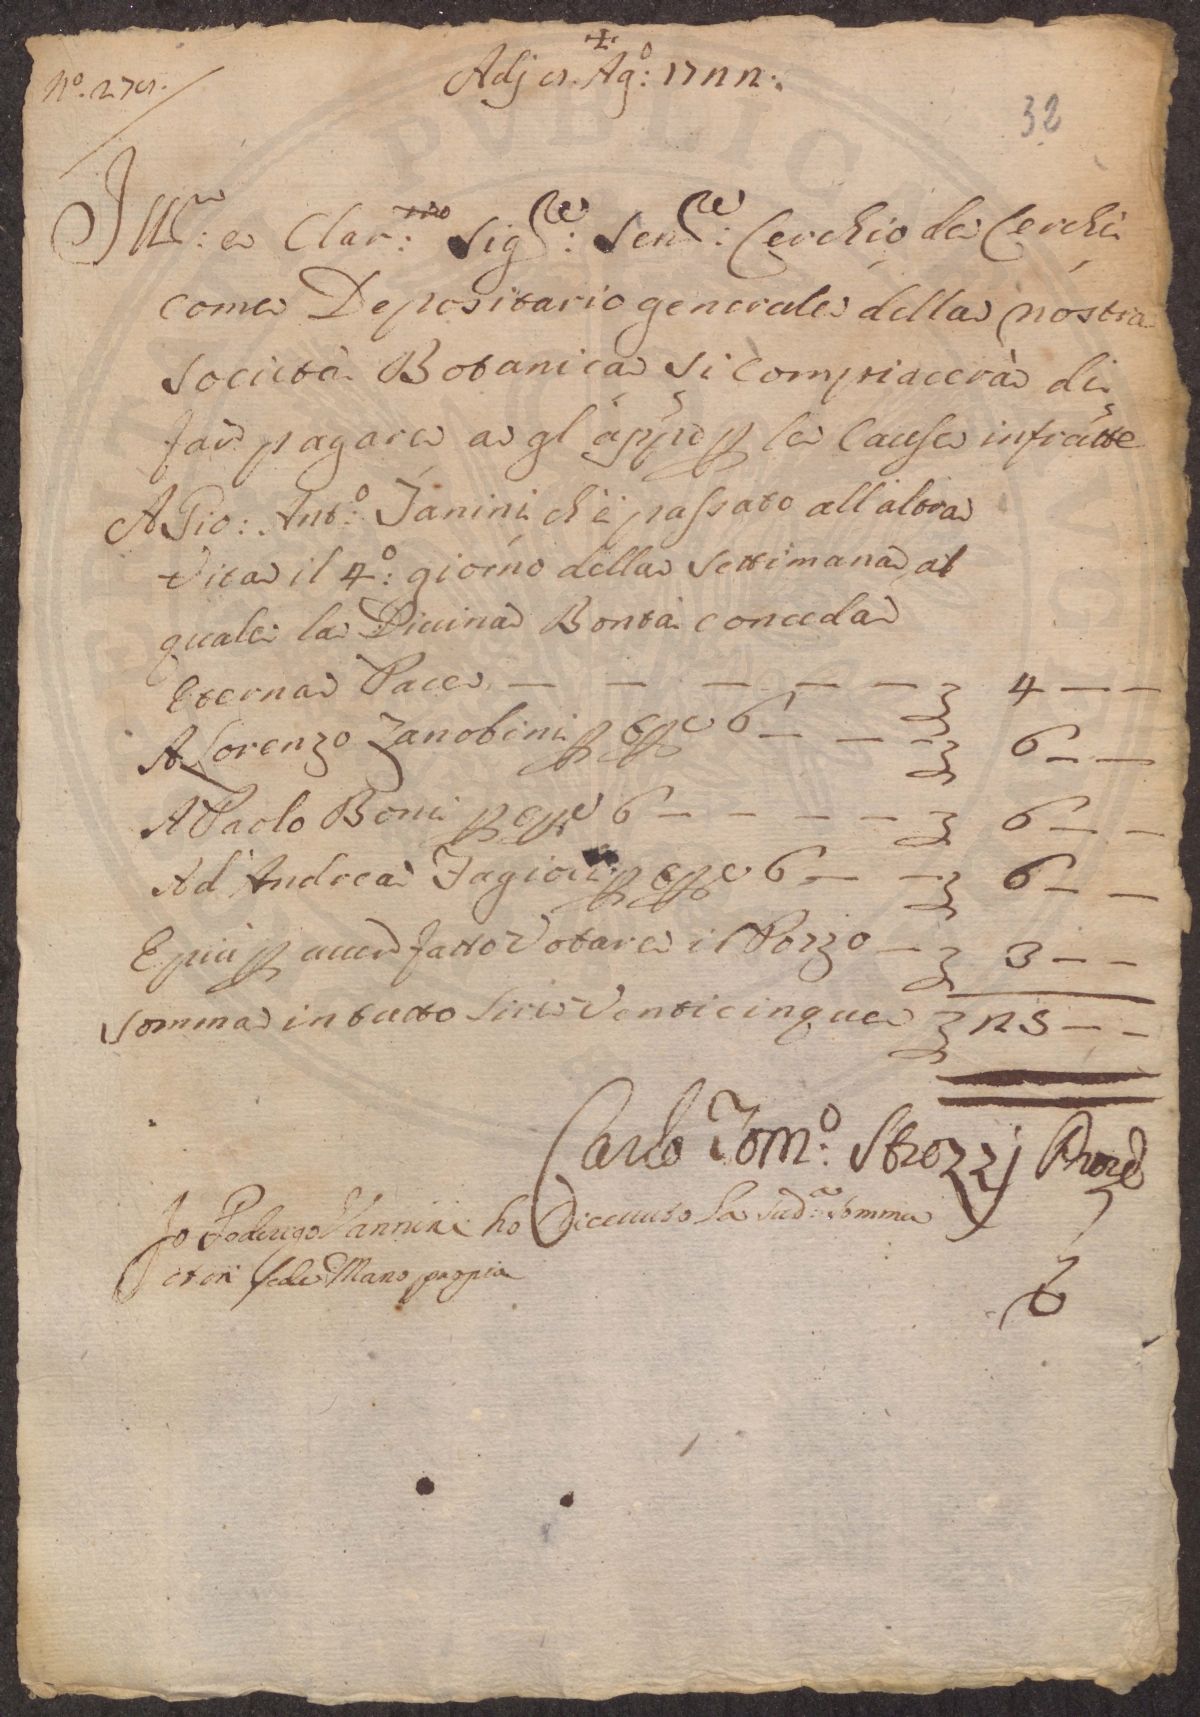 ✝
Adj 1. Ag.º: 1722:
Nº. 271.
32
Ill.re: e Clar:mo Sig.re: Sen.re: Cerchio de Cerchi
come Depositario generale della nostra
Società Botanica si compiacerà di
far pagare a gl' app.i p le cause infratte
A Gio: Ant.º: Janini ch'è passato all' altra
Vita il 4.º: giorno della Settimana, al
quale la Divina Bontà conceda
Eterna Pace — — — — — 4 — —
A Lorenzo Zanobini p op.e 6 — — — 6 — —
A Paolo Boni p op.e 6 — — — — 6 — —
Ad' Andrea Fagioli p op.e 6 — — 6 — —
E più p aver fatto Votare il Pozzo — 3 — —
Somma in tutto Lire Venticinque 25 — —
Carlo Tom.º: Strozzi Prov.e
Io Vannini ho Riceuuto la sud.a somma
Mano propria